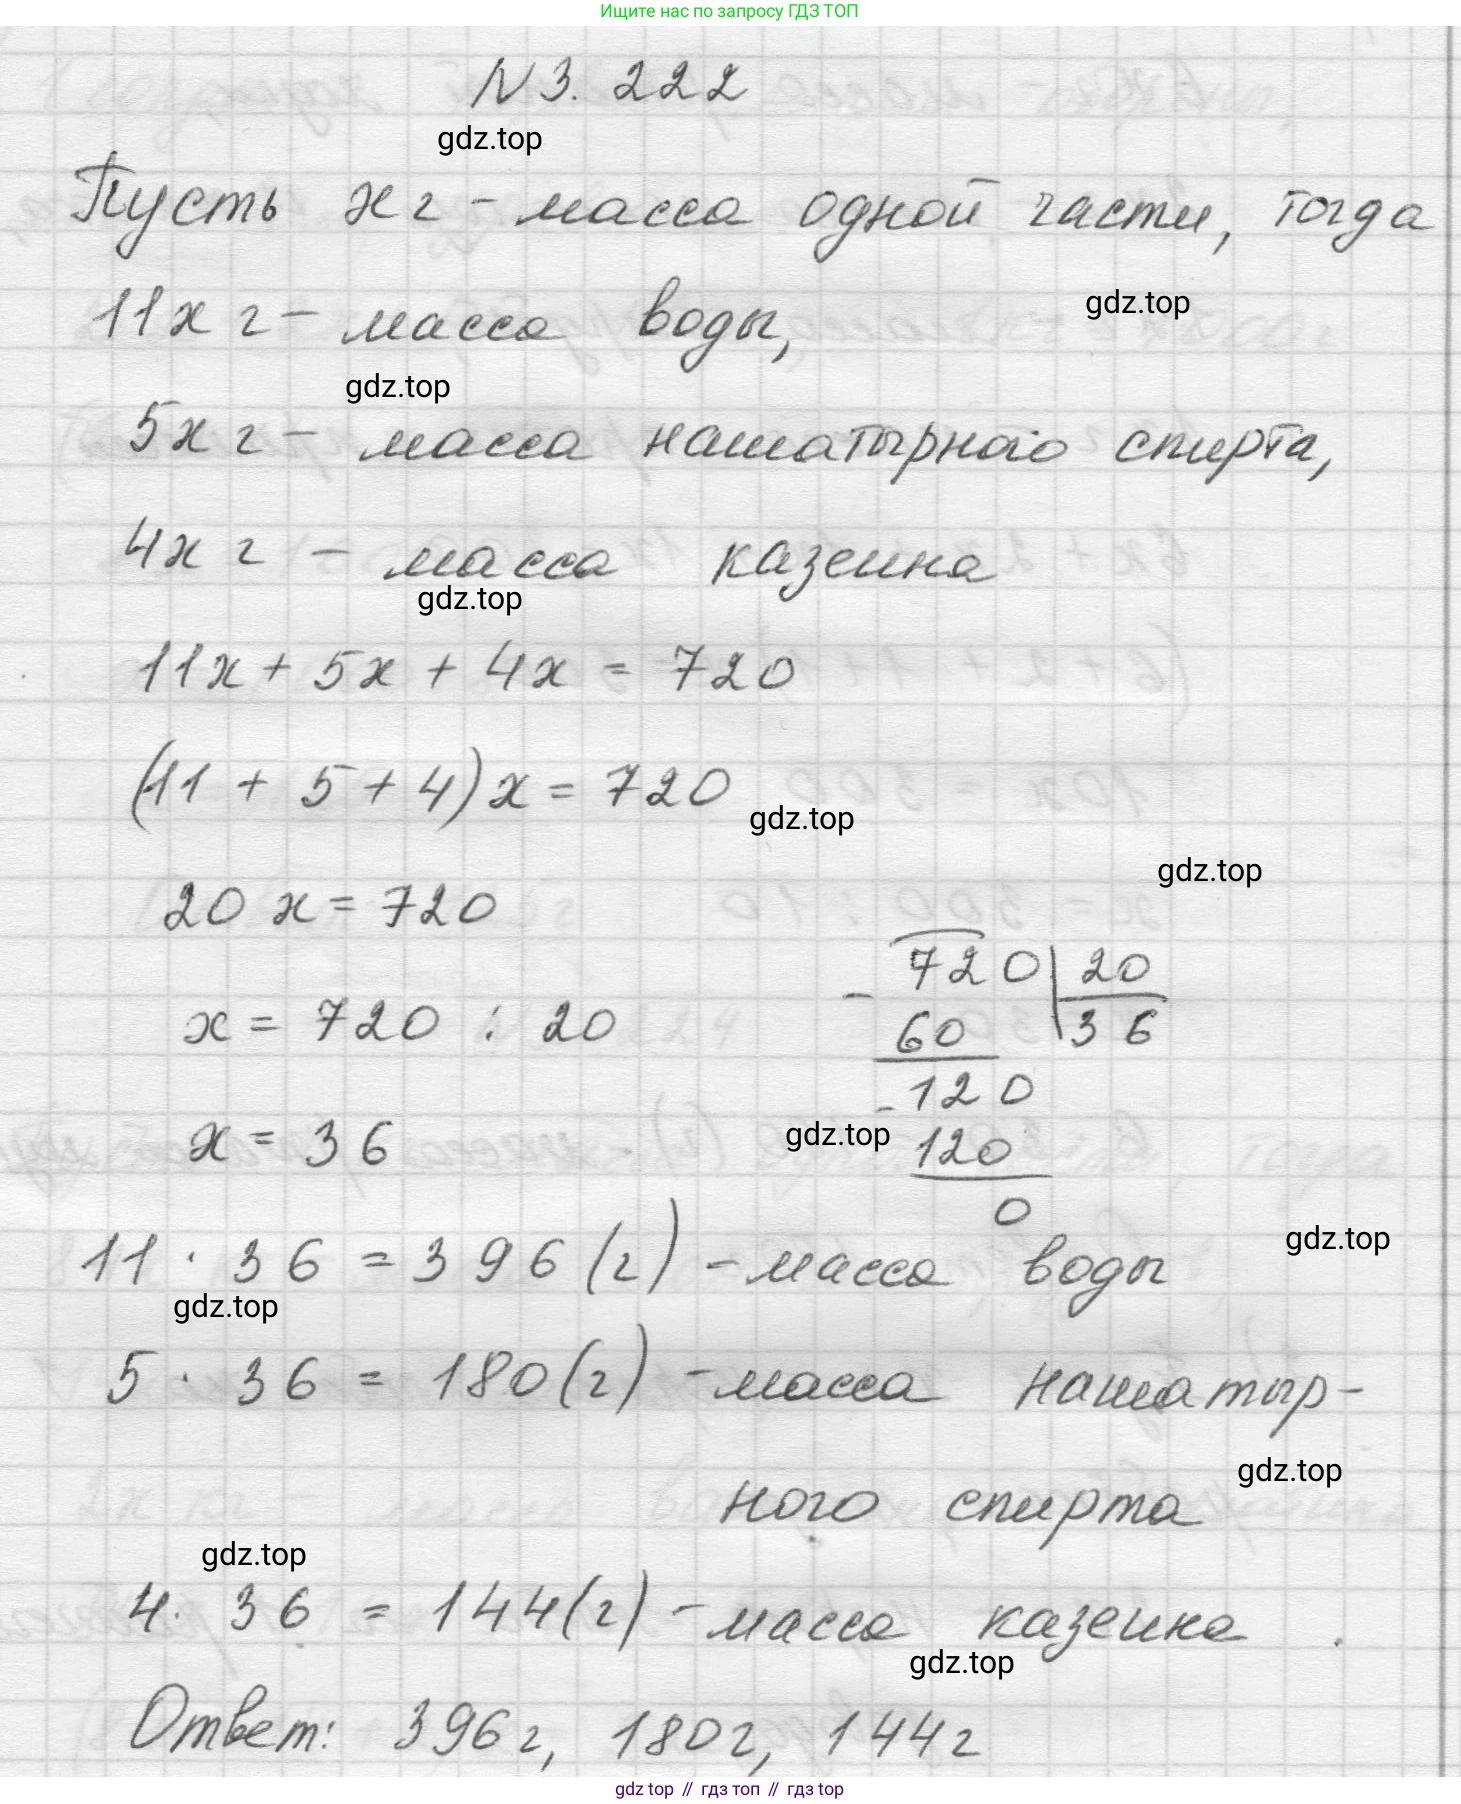 Ищите нас по запросу ГДЗ ТОП
N 3. 222
gdz.top
Пусть x г - масса одной части, тогда
11x г - масса воды,
gdz.top
gdz.top
5x г - масса нашатырного спирта,
4x г - масса казеина
gdz.top
11x + 5x + 4x = 720
(11 + 5 + 4) x = 720
gdz.top
gdz.top
20 x = 720
720 | 20
x = 720 : 20
- 60 36
- 120
x = 36
gdz.top
120
0
gdz.top
11 · 36 = 396 (г) - масса воды
gdz.top
5 · 36 = 180 (г) - масса нашатыр-
gdz.top
ного спирта
gdz.top
4 · 36 = 144 (г) - масса казеина
gdz.top
Ответ: 396 г, 180 г, 144 г
gdz top // гдз топ // гдз top